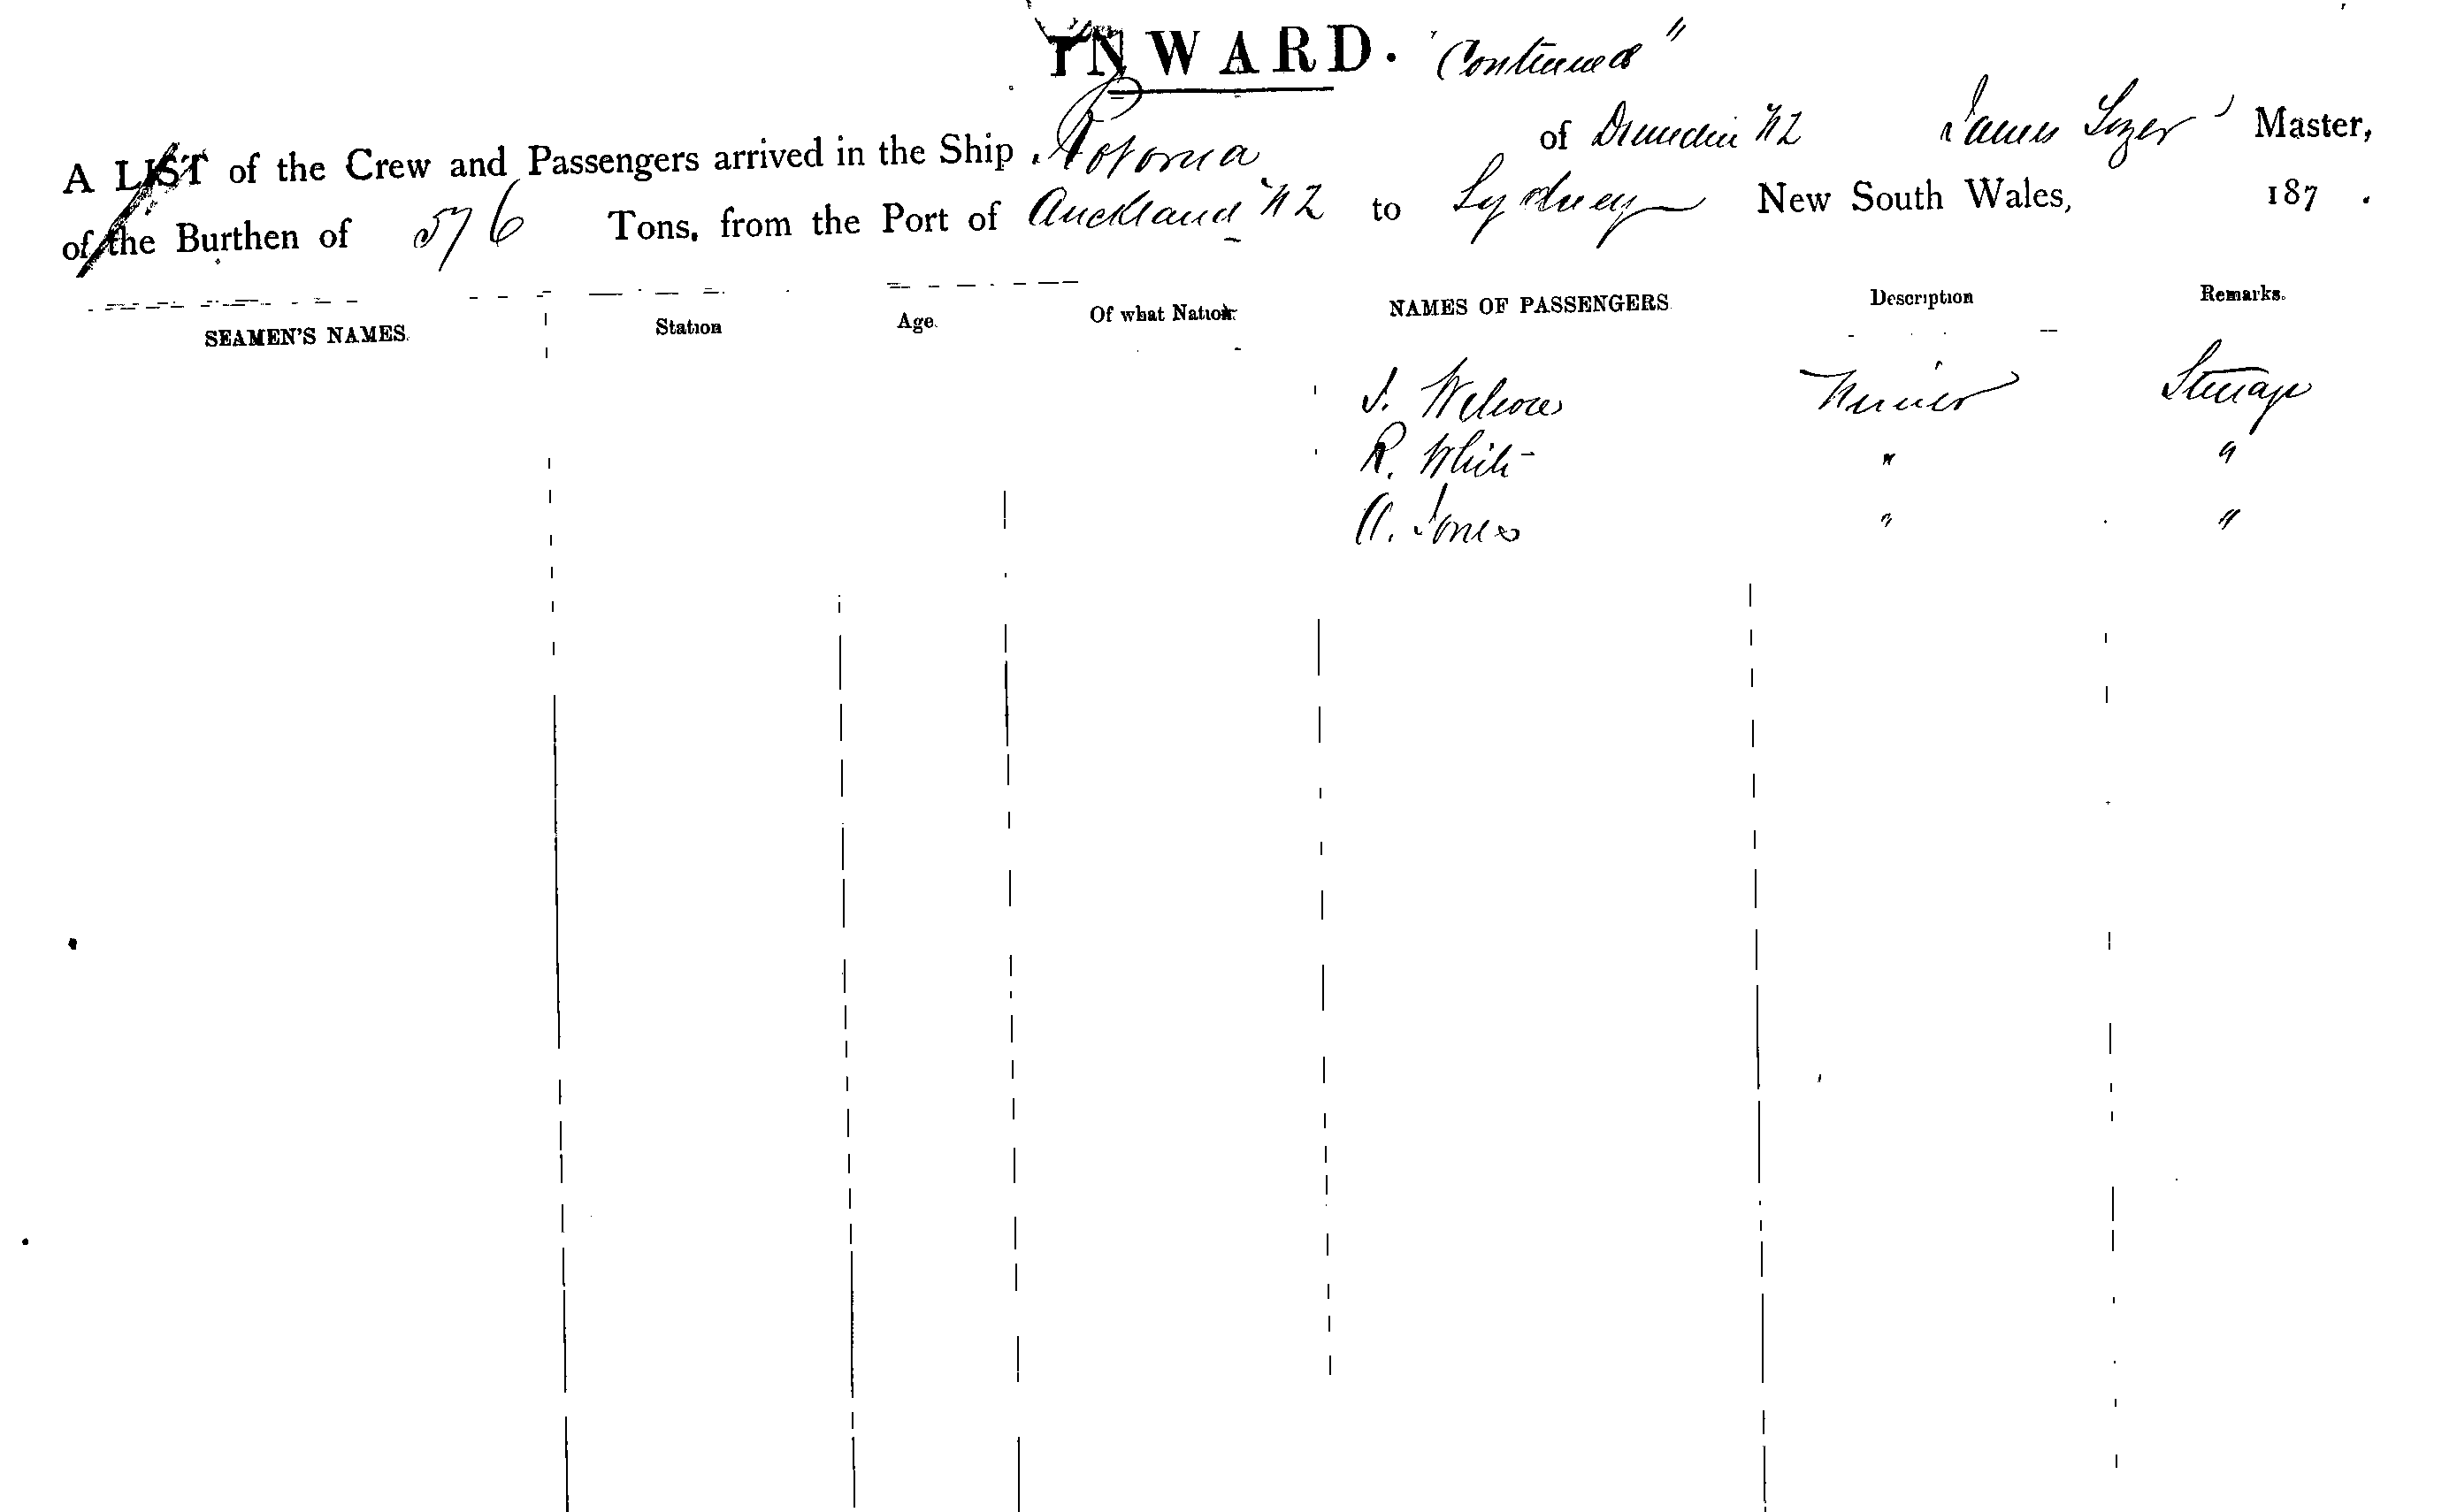 INWARD. "Continued"
A LIST of the Crew and Passengers arrived in the Ship Rotorua of Dunedin NZ James Master,
of the Burthen of 576 Tons, from the Port of Auckland NZ to Sydney New South Wales, 187 .
SEAMEN'S NAMES. Station Age. Of what Nation. NAMES OF PASSENGERS Description Remarks.
J. Miner Steerage
R. White " "
A. Jones " "